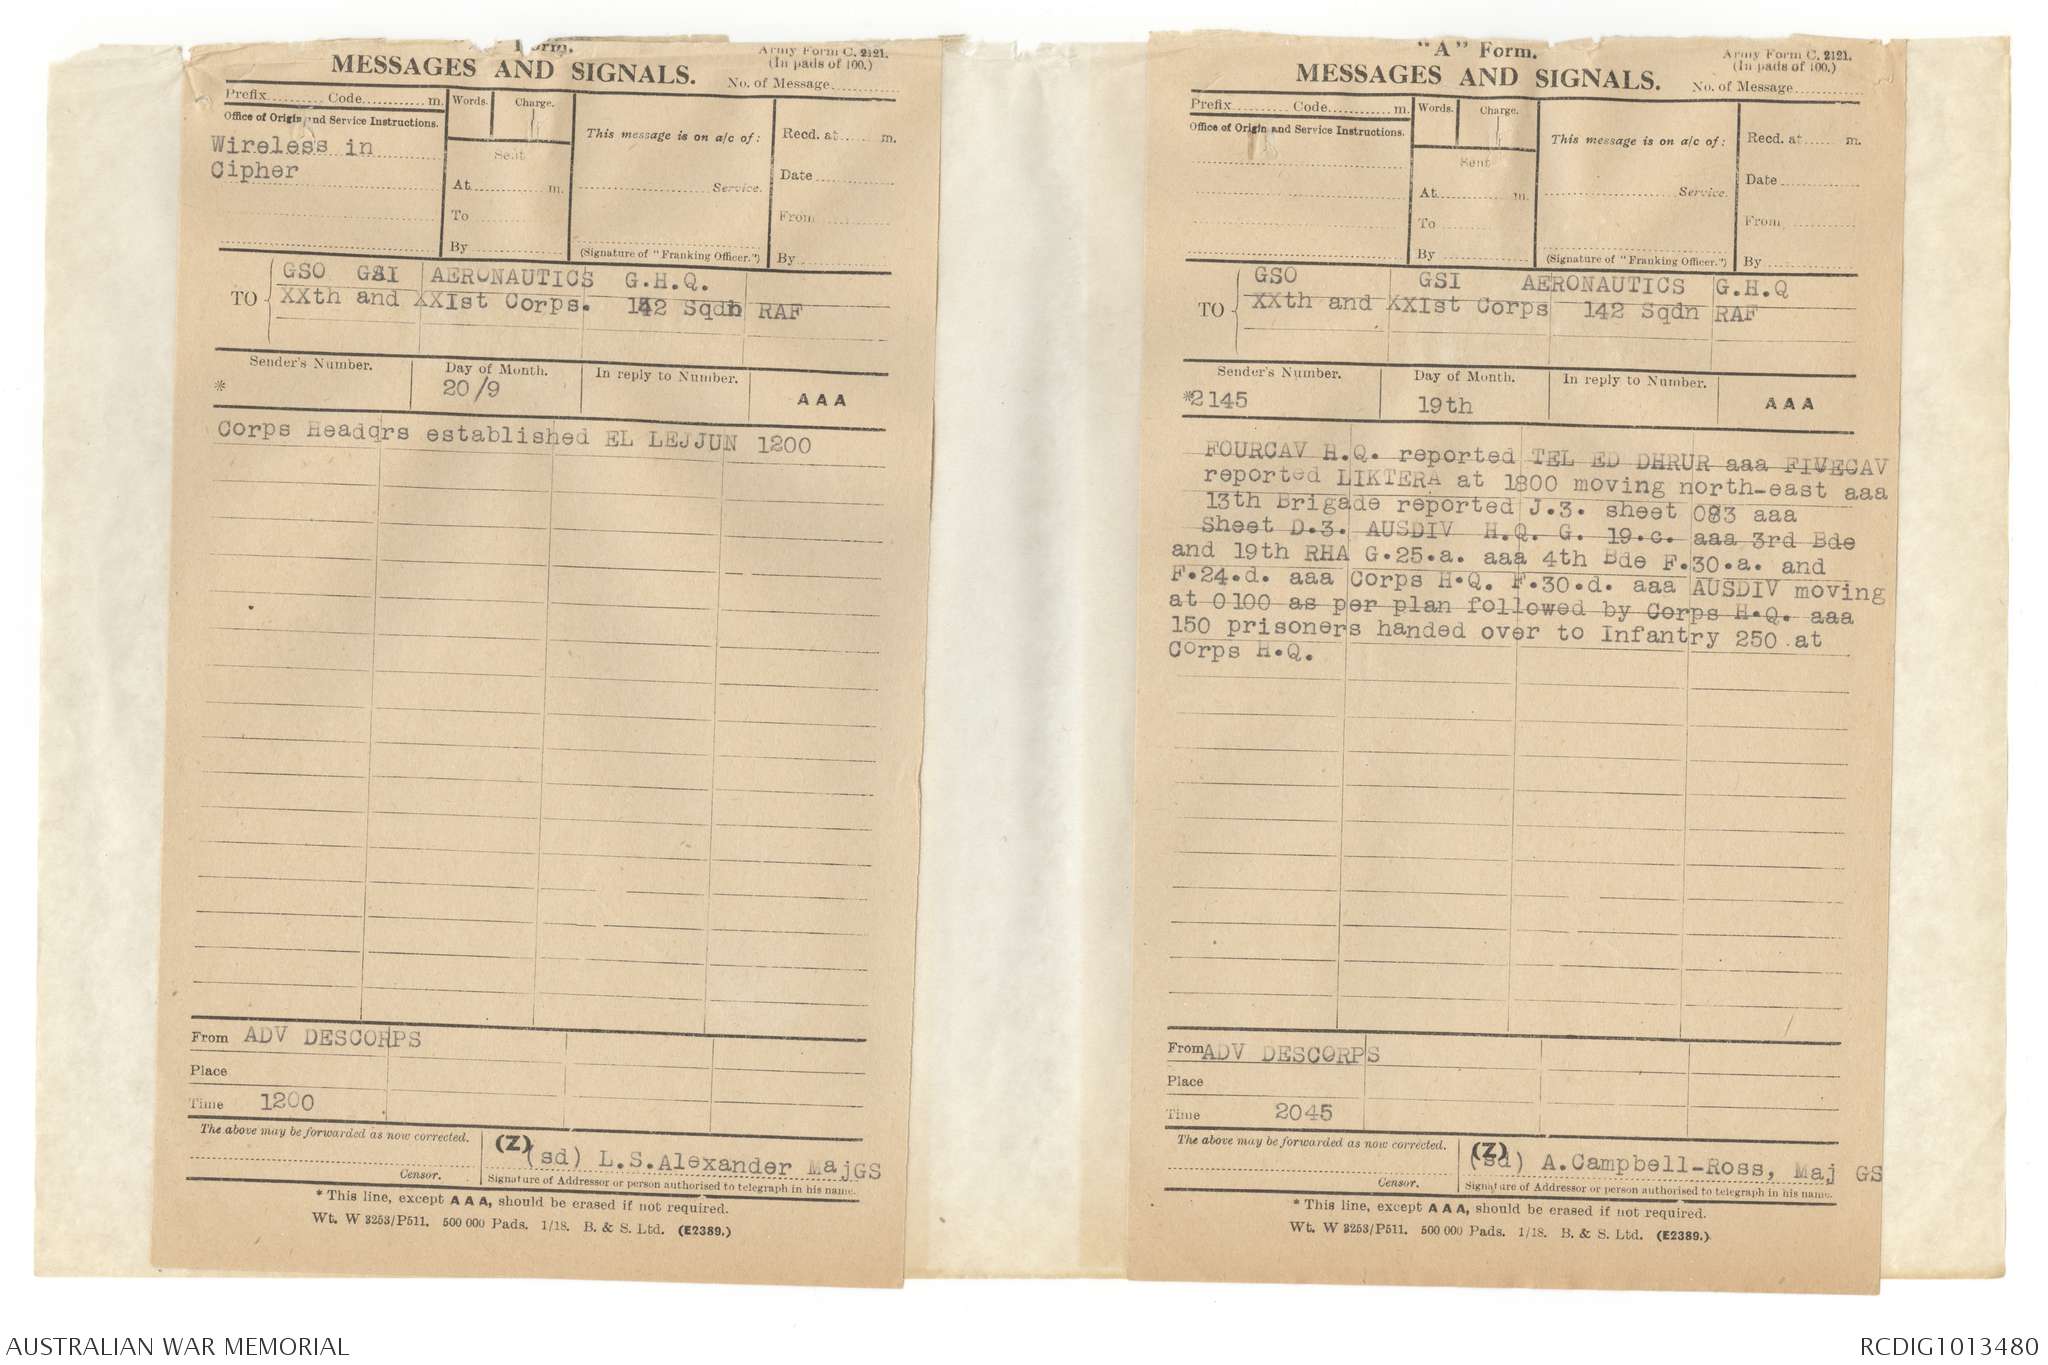 Form.
Army Form C. 2121.
(In pads of 100.)
MESSAGES AND SIGNALS.
No. of Message
Prefix Code m.
Words. Charge.
Office of Origin and Service Instructions.
This message is on a/c of:
Recd. at m.
Wireless in
Cipher
Sent
At m.
To
By
Service.
(Signature of "Franking Officer.")
Date
From
By
TO
GSO GSI AERONAUTICS G.H.Q.
XXth and XXIst Corps. 142 Sqdn RAF
Sender's Number. Day of Month. In reply to Number.
* 20/9 AAA
Corps Headqrs established EL LEJJUN 1200
From ADV DESCORPS
Place
Time 1200
The above may be forwarded as now corrected. (Z)
(sd) L.S.Alexander MajGS
Censor. Signature of Addressor or person authorised to telegraph in his name.
* This line, except AAA, should be erased if not required.
Wt. W 3253/P511. 500 000 Pads. 1/18. B. & S. Ltd. (E2389.)
"A" Form.
Army Form C. 2121.
(In pads of 100.)
MESSAGES AND SIGNALS.
No. of Message
Prefix Code m.
Words. Charge.
Office of Origin and Service Instructions.
This message is on a/c of:
Recd. at m.
Sent
At m.
To
By
Service.
(Signature of "Franking Officer.")
Date
From
By
TO
GSO GSI AERONAUTICS G.H.Q
XXth and XXIst Corps 142 Sqdn RAF
Sender's Number. Day of Month. In reply to Number.
*2145 19th AAA
FOURCAV H.Q. reported TEL ED DHRUR aaa FIVECAV
reported LIKTERA at 1800 moving north-east aaa
13th Brigade reported J.3. sheet 083 aaa
Sheet D.3. AUSDIV H.Q. G. 19.c. aaa 3rd Bde
and 19th RHA G.25.a. aaa 4th Bde F.30.a. and
F.24.d. aaa Corps H.Q. F.30.d. aaa AUSDIV moving
at 0100 as per plan followed by Corps H.Q. aaa
150 prisoners handed over to Infantry 250 at
Corps H.Q.
From ADV DESCORPS
Place
Time 2045
The above may be forwarded as now corrected. (Z)
(sd) A.Campbell-Ross, Maj GS
Censor. Signature of Addressor or person authorised to telegraph in his name.
* This line, except AAA, should be erased if not required.
Wt. W 3253/P511. 500 000 Pads. 1/18. B. & S. Ltd. (E2389.)
AUSTRALIAN WAR MEMORIAL
RCDIG1013480